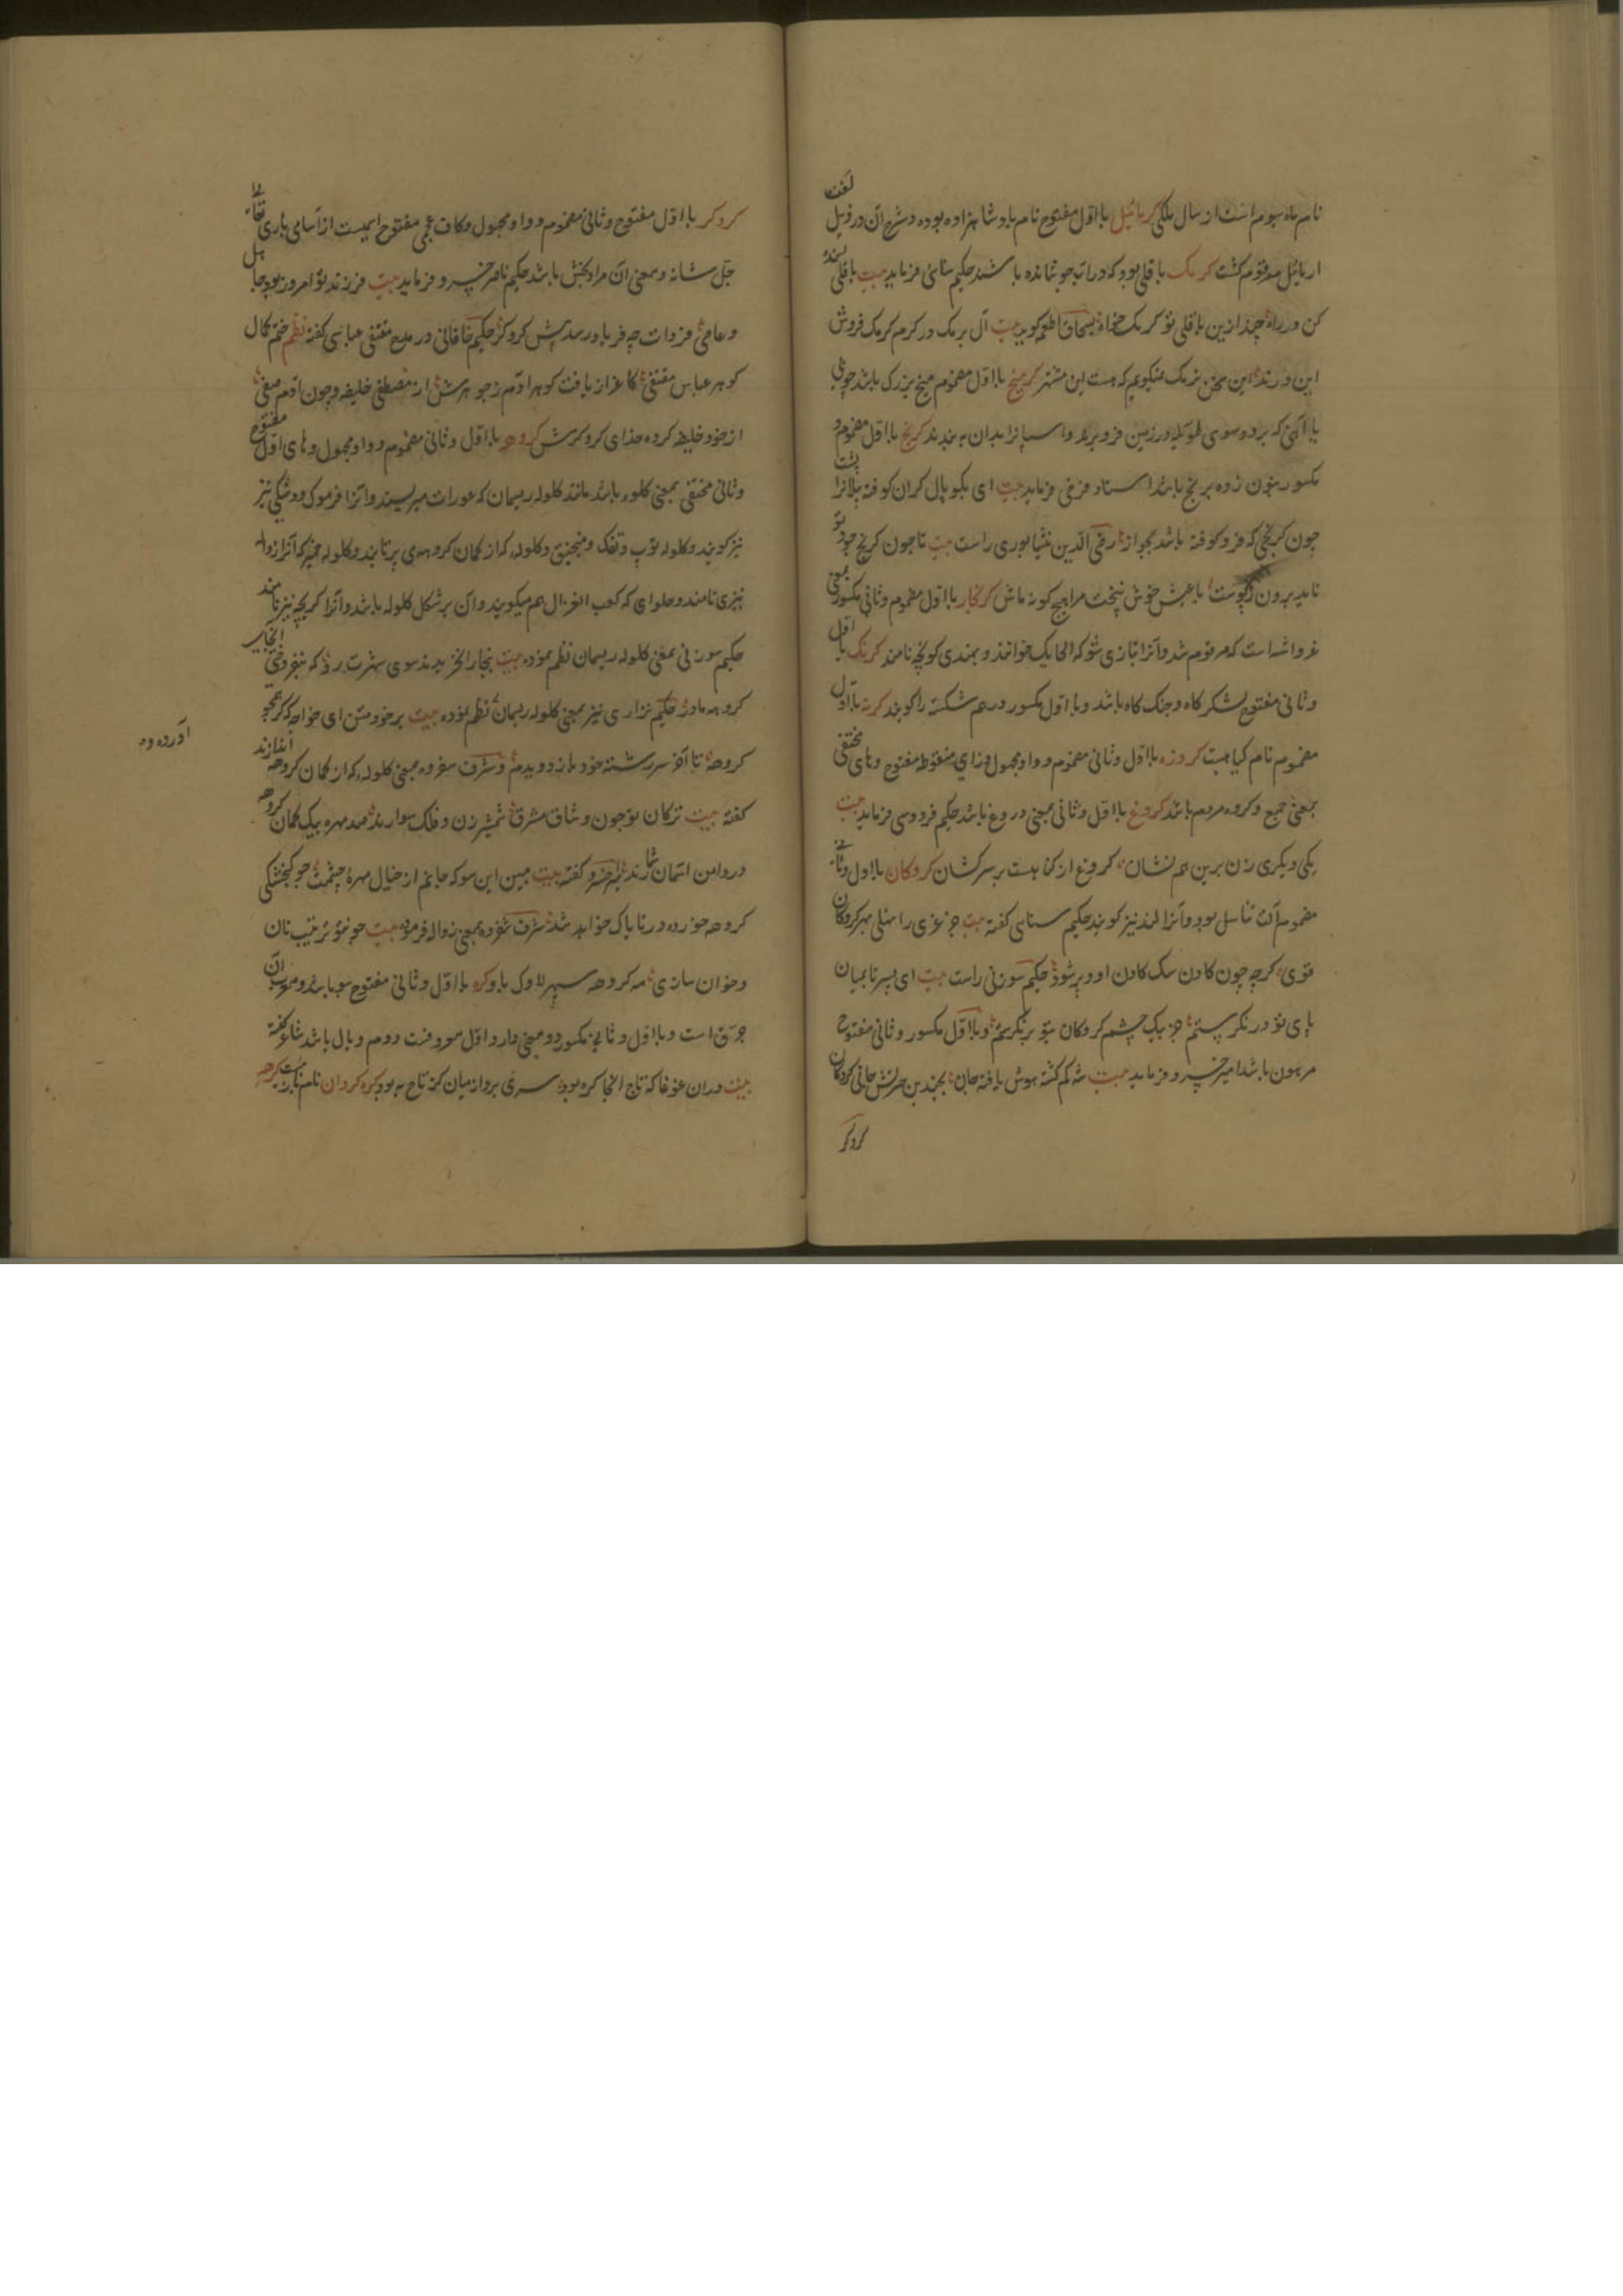 نام ماه سوم است از سال ملکی کرمائیل با اول مفتوح نام پادشاهزاده بوده و شرح آن در ذیل لغت
ارمائیل مرقوم گشت کرمک باقلی بود که در آب جوشانده باشند حکیم سنائی فرماید بیت باقلی
کن در راه چند ازین باقلی تو کرمک خواه بسحاق اطعمه گوید بیت آل برمک در کرم کرمک فروش
این درند این سخن نرمک نمیگویم که هست این مشتهر کرمیخ با اول مضموم میخ بزرگ باشد چوبی
یا آهنی که بر دو سوی طویله در زمین فرو برند و اسپانرا بدان به بندند کرنج با اول مضموم و
مکسور بنون زده برنج باشد استاد فرخی فرماید بیت ای بکوپال گران کوفته پیلانرا پشت
چون کرنجی که فرو کوفته باشد بجواز رضی الدین نشابوری راست بیت تا چون کرنج جود تو
ناید برون ز پوست با عیش خوش نپخت مرا هیچ گونه ماش کرنجار با اول مضموم و ثانی مکسور بمعنی
غرواشه است که مرقوم شد و آنرا بتازی شوکه الحایک خوانند و بهندی کونچه نامند کرنک با اول
و ثانی مفتوح لشکرگاه و جنگ گاه باشد و با اول مکسور درهم شکسته را گویند کرنه با اول
مضموم نام گیاهیست کروزه با اول و ثانی مضموم و واو مجهول و زای منقوطه مفتوح و های مختفی
بمعنی جمع و گروه مردم باشد کروغ با اول و ثانی بمعنی دروغ باشد حکیم فردوسی فرماید بیت
یکی دیگری زن برین هم نشان کروغ از گناهست بر سرکشان کروکان با اول و ثانی
مضموم آلت تناسل بود و آنرا لند نیز گویند حکیم سنائی گفته بیت جز غری را نهلی بهر کروکان
قوی گرچه چون کادن سگ کادن او دیر شود حکیم سوزنی راست بیت ای پسر تا بمیان
پای تو در نگرستم جز بیک چشم کروکان بتو بر نگریم و با اول مکسور و ثانی مفتوح
مرهون باشد امیرخسرو فرماید بیت شه گم گشته هوش یافته جان بچندین خرمش جانی کروکان
کروکر
کروکر با اول مفتوح و ثانی مضموم و واو مجهول و کاف عجمی مفتوح اسمیست از اسامی باری تعالی
جل شانه و معنی آن مرادبخش باشد حکیم ناصرخسرو فرماید بیت فرزند تو امروز بود جاهل
و عاصی فردات چه فریاد رسد پیش کروکر حکیم خاقانی در مدح مقتفی عباسی گفته نظم ختم کمال
گوهر عباس مقتفی کاعزاز یافت گوهر آدم ز جوهرش از مصطفی خلیفه و چون آدم صفی
از خود خلیفه کرده خدای کروکرش کروهه با اول و ثانی مضموم و واو مجهول و های اول مفتوح
و ثانی مختفی بمعنی کلوله باشد مانند کلوله ریسمان که عورات میریسند و آنرا فرموک و دوشکی نیز
نیز گویند و کلوله توپ و تفنگ و منجنیق و کلوله که از کمان کروهه می پرتابند و کلوله خمیر که آنرا زواله
نیزی نامند و حلوای که کعب الغزال هم میگویند و آن بر شکل کلوله باشد و آنرا کریچه نیز نامند
حکیم سوزنی بمعنی کلوله ریسمان نظم نموده بیت بنجارالخر بدند سوی شهرت برد که بفروختی انجا بر
کروهه مادر حکیم نزاری نیز بمعنی کلوله ریسمان نظم نموده بیت بر خود متن ای خواجه که کر همچو
کروهه تا آخر سررشته خود باز دویدم و شرف سفروه بمعنی کلوله که از کمان کروهه اندازند
گفته بیت ترکان تو چون وشاق مشرق شمشیرزن و فلک سوارند صد مهره بیک کمان کروهه
در دامن آسمان شمارند امیرخسرو گفته بیت مبین این سو که جانم از خیال مهره چشمت چو گنجشکی
کروهه خورده در ناپاک خواهد شد شرف شفروه بمعنی زواله فرموده بیت چو تو ترتیب نان
و خوان سازی مه کروهه سپهر لاوک باد کره با اول و ثانی مفتوح
است و با اول و ثانی مکسور دو معنی دارد اول معروفست دوم وبال باشد شاعر گفته
بیت دران غوغا که تاج آنجا کره بود سری برد از میان کز تاج به بود کره کردان نام کرهه
آورده و به